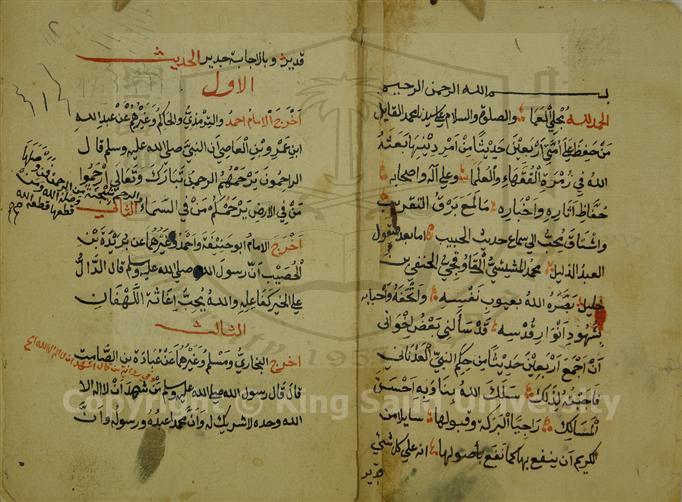 بسم الله الرحمن الرحيم
الحمد لله مجلي العما والصلوة والسلام على سيدنا محمد القايل
من حفظ على امتي اربعين حديثا من امر دينها بعثه
الله في زمرة الفقهاء والعلما وعلى آله واصحابه
حفاظ آثاره واخباره ما لمع برق التقريب
واشتاق محب الى سماع حديث الحبيب اما بعد فيقول
العبد الذليل محمد القاوقجي الحنفي بن
خليل بصره الله بعيوب نفسه واتحفه واحبابه
بشهود انوار قدسه قد سألني بعض اخواني
أن اجمع اربعين حديثا من حكم النبي العدناني
فاجبته لذلك سلك الله بنا وبه احسن
المسالك راجيا البركة وقبولها سايلا من
الكريم أن ينفع بها كما نفع بأصولها انه على كل شيء
قدير
قدير وبالاجابة جدير الحديث
الاول
أخرج الامام احمد والترمذي والحاكم وغيرهم عن عبد الله
ابن عمرو بن العاصي أن النبي صلى الله عليه وسلم قال
الراحمون يرحمهم الرحمن تبارك وتعالى ارحموا
من في الارض يرحمكم من في السماء الثاني
أخرج الامام ابو حنيفة واحمد وغيرهما عن بريدة بن
الحصيب أن رسول الله صلى الله عليه وسلم قال الدال
على الخير كفاعله والله يحب إغاثة اللهفان
الثالث
اخرج البخاري ومسلم وغيرهما عن عبادة بن الصامت
قال قال رسول الله صلى الله عليه وسلم من شهد أن لا اله الا
الله وحده لا شريك له وأن محمدا عبده ورسوله وأن
من الرحمن فمن
وصلها
وصله الله ومن
قطعها قطعه الله
١
٢
Copyright © King Saud University
1957